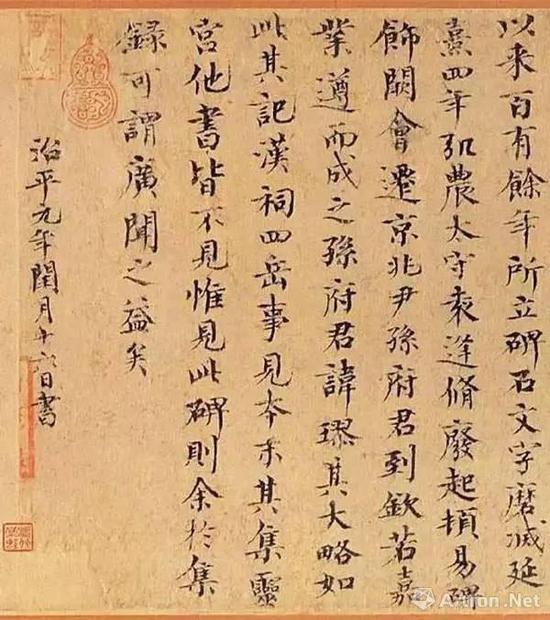 以来百有餘年所立碑石文字磨滅延
熹四年弘農太守袁逢脩廢起頓易碑
飾闕會遷京兆尹孫府君到欽若嘉
業遵而成之孫府君諱璆其大略如
此其記漢祠四岳事見本末其集靈
宮他書皆不見惟見此碑則余於集
録可謂廣聞之益矣
治平元年閏月十六日書
Artron.Net